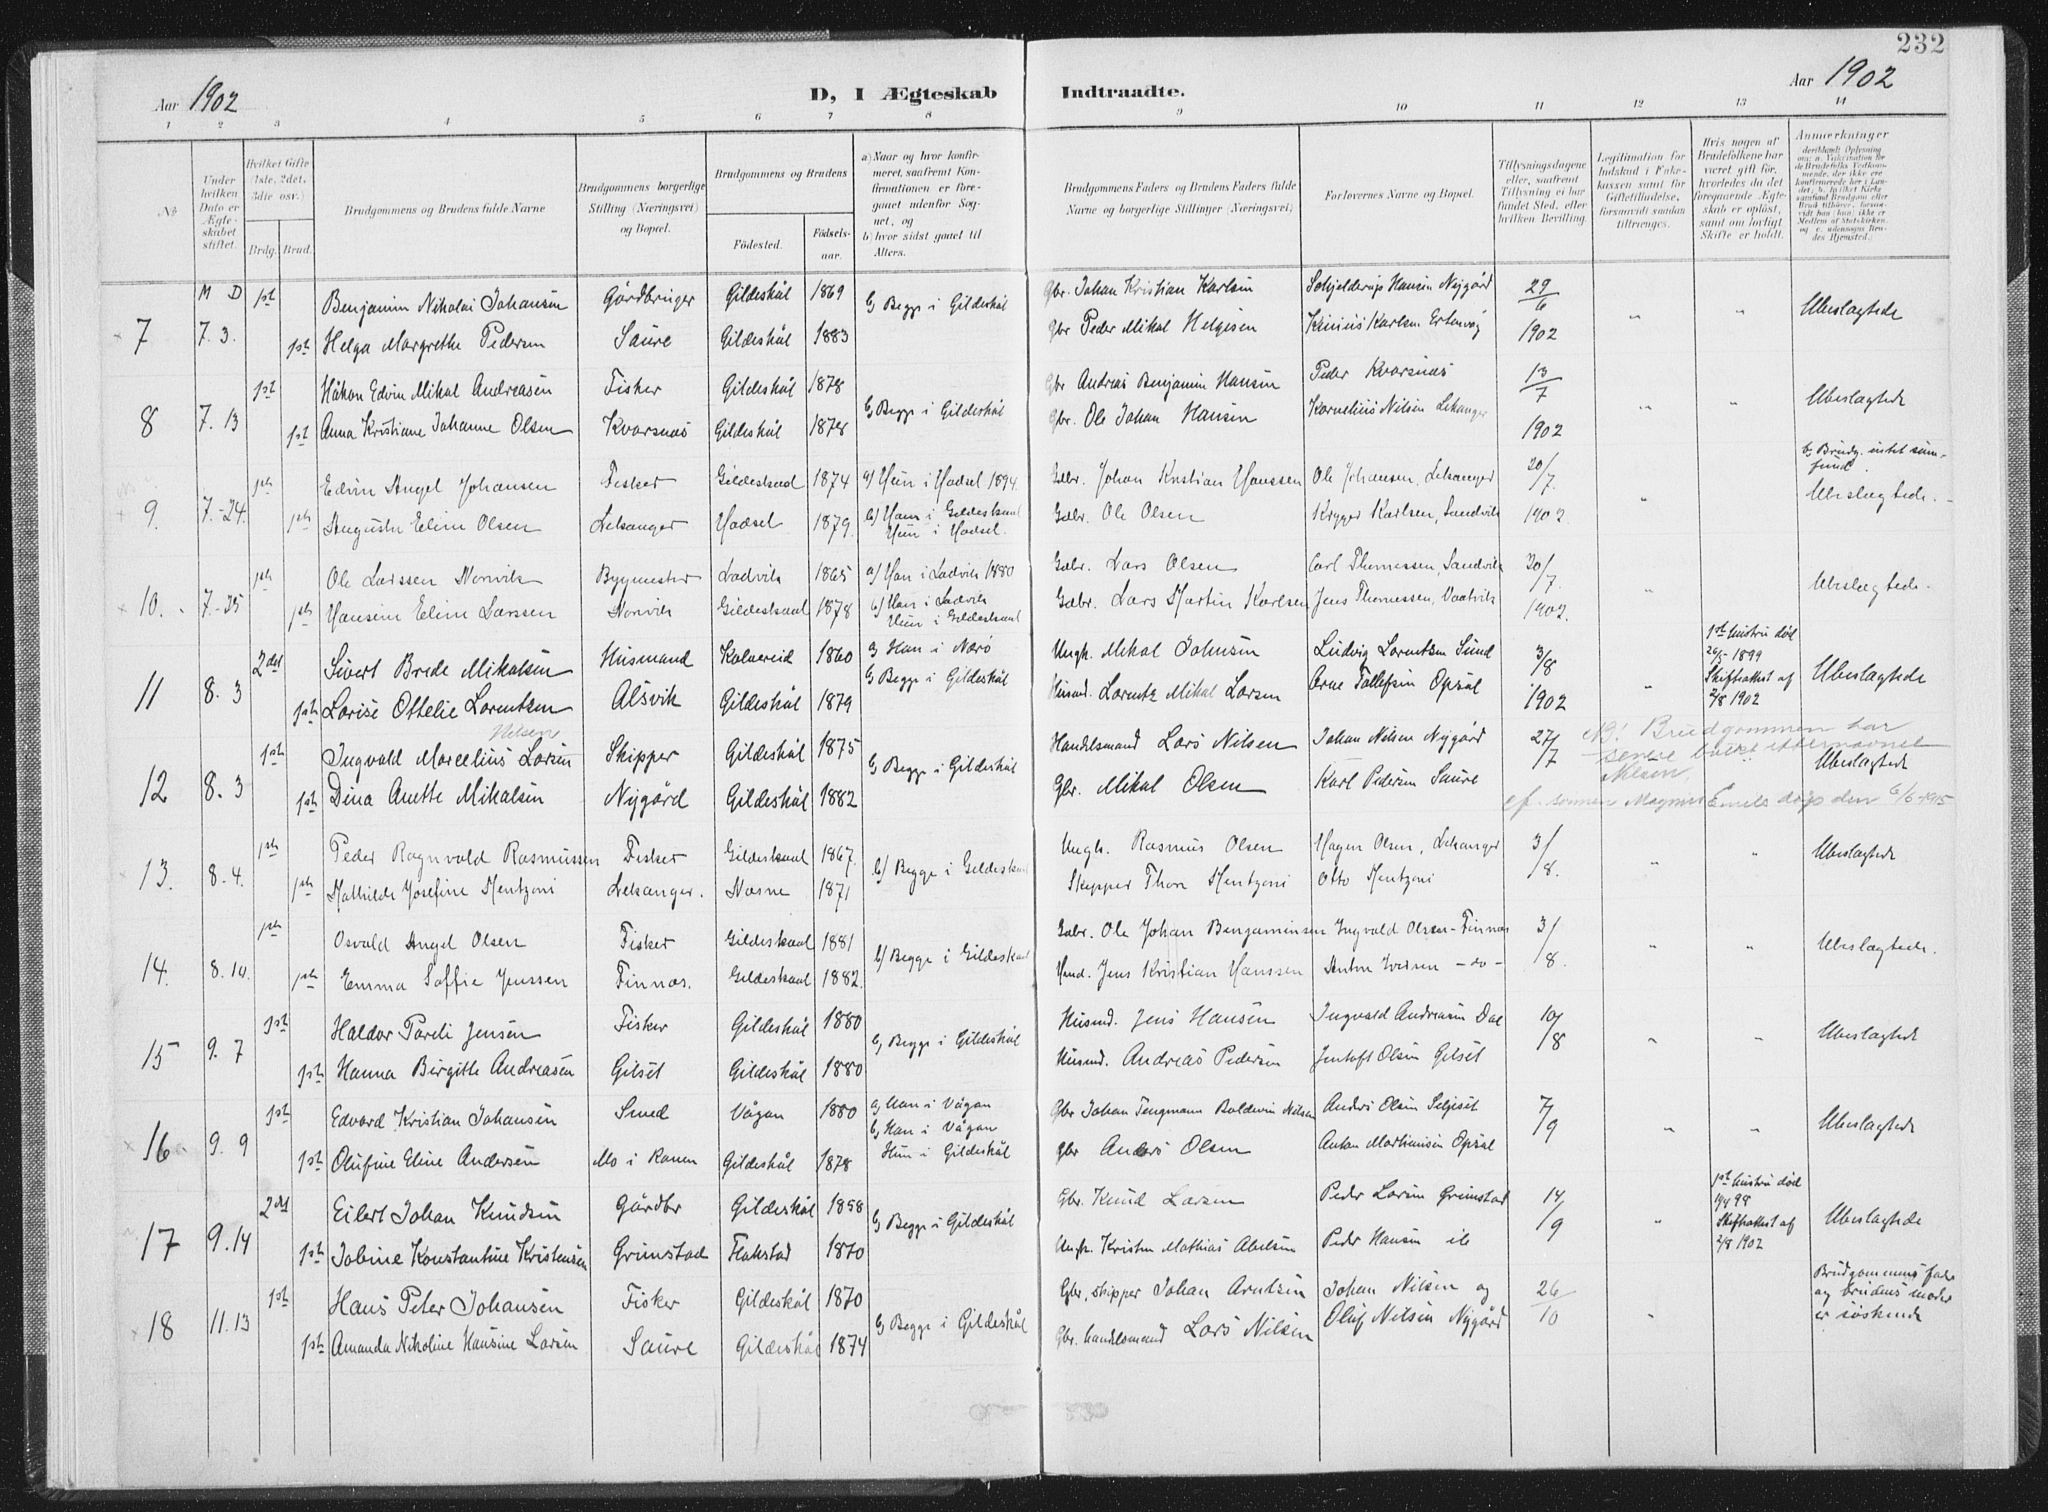 232
Aar 1902
D, I Ægteskab Indtraadte.
Aar 1902
1 2 3 4 5 6 7 8 9 10 11 12 13 14
No
Under hvilken Dato er Ægteskabet stiftet.
Hvilket Gifte (1ste, 2det, 3die osv.)
Brdg. Brud.
Brudgommens og Brudens fulde Navne
Brudgommens borgerlige Stilling (Næringsvei) og Bopæl.
Brudgommens og Brudens
Fødested.
Fødselsaar.
a) Naar og hvor konfirmeret, saafremt Konfirmationen er foregaaet udenfor Sognet, og
b) hvor sidst gaaet til Alters.
Brudgommens Faders og Brudens Faders fulde Navne og borgerlige Stillinger (Næringsvei)
Forlovernes Navne og Bopæl.
Tillysningsdagene eller, saafremt Tillysning ei har fundet Sted, efter hvilken Bevilling.
Legitimation for Indskud i Enkekassen samt for Giftetilladelse, forsaavidt saadan tiltrænges.
Hvis nogen af Brudefolkene har været gift før, hvorledes da det foregaaende Ægteskab er opløst, samt om lovligt Skifte er holdt.
Anmerkninger
M D
7 7. 3. 1st Benjamin Nikolai Johansen Gårdbruger Gildeskål 1869 b, Begge i Gildeskål Gbr. Johan Kristian Karlsen Schjelderup Hansen Nygård 29/6 " " Ubeslægtede
1st Helga Margrethe Pedersen Saure Gildeskål 1883 Gbr Peder Mikal Helgesen Kinius Karlsen Ertenvåg 1902
8 7. 13 1st Håkon Edvin Mikal Andreasen Fisker Gildeskål 1878 b, Begge i Gildeskål Gbr Andreas Benjamin Hansen Peder Kvarsnæs 13/7 " " Ubeslægtede
1st Anna Kristiane Johanne Olsen Kvarsnæs Gildeskål 1878 Gbr. Ole Johan Hansen Kornelius Nilsen Lekanger 1902
b) Brudg. intet samfund.
9. 7.-24. 1st Edvin Angel Johansen Fisker Gildeskaal 1874 a) Hun i Hadsel 1894. Gdbr. Johan Kristian Hanssen Ole Johansen, Lekanger 20/7. " Ubeslægtede.
1st Augusta Eline Olsen Lekanger Hadsel 1879. b) Han i Gildeskaal Hun i Hadsel. Gdbr. Ole Olsen Krygger Karlsen, Sandvik 1902.
10. 7-25 1st Ole Larssen Norvik Bygmester Ladvik 1865 a) Han i Ladvik 1880 Gdbr. Lars Olsen Carl Thomessen, Sandvik 30/7. " Ubeslægtede.
1st Hansine Eline Larssen Norvik Gildeskaal 1878 b) Han i Ladvik Hun i Gildeskaal Gdbr. Lars Martin Karlsen Jens Thomessen, Vaatvik 1902.
11 8. 3 2det Sivert Brede Mikalsen Husmand Kalvereid 1860 a, Han i Nærø Ungk. Mikal Johnsen Ludvig Lorentsen Sund 3/8 " 1st hustru død 26/5 1899 Ubeslægtede
1st Lovise Ottelie Lorentzen Alsvik Gildeskål 1879 b, Begge i Gildeskål Husmd. Lorentz Mikal Larsen Arne Tollefsen Opsal 1902 Skifteattest af 2/8 1902
Nilsen
12 8. 3 1st Ingvald Marcelius Larsen Skipper Gildeskål 1875 b, Begge i Gildeskål Handelsmand Lars Nilsen Johan Nilsen Nygård 27/7 NB! Brudgommen har senere brukt etternavnet Nilsen. Ubeslægtede
1st Dina Anette Mikalsen Nygård Gildeskål 1882 Gbr. Mikal Olsen Karl Pedersen Saure cf. sønnen Magnus Emils dåp den 6/6-1915
13. 8. 4. 1st Peder Ragnvald Rasmussen Fisker Gildeskaal 1867. b) Begge i Gildeskaal Ungk. Rasmus Olsen Hagen Olsen, Lekanger 3/8. " " Ubeslægtede
1st Mathilde Josefine Mentzoni Lekanger. Næsne 1871 Skipper Thor Mentzoni Otto Mentzoni
14. 8. 14. 1st Osvald Angel Olsen Fisker Gildeskaal 1881 b) Begge i Gildeskaal Gdbr. Ole Johan Benjaminsen Ingvald Olsen-Finnæs 3/8. " " Ubeslægtede.
1st Emma Soffie Jenssen Finnæs. Gildeskaal 1882. Hmd. Jens Kristian Hanssen Anton Iversen - do -
15 9. 7 1st Haldor Pareli Jensen Fisker Gildeskål 1880 b, Begge i Gildeskål Husmd. Jens Hansen Ingvald Andreasen Dal 10/8 " " Ubeslægtede
1st Hanna Birgitte Andreasen Gilset Gildeskål 1880 Husmd. Andreas Pedersen Jentoft Olsen Gilset
16 9. 9 1st Edvard Kristian Johansen Smed Vågan 1880 a, Han i Vågan Gbr Johan Tengmann Boldevin Nilsen Anders Olsen Selset 7/9 " " Ubeslægtede
1st Olufine Eline Andersen Mo i Ranen Gildeskål 1878 b, Han i Vågan Hun i Gildeskål Gbr Anders Olsen Anton Mathiasen Opsal
17 9. 14 2det Eilert Johan Knudsen Gårdbr Gildeskål 1858 b, Begge i Gildeskål Gbr. Knud Larsen Peder Larsen Grimstad 14/9 " 1st hustru død 98 Skifteattest af 2/8 1902 Ubeslægtede
1st Jobine Konstantine Kristensen Grimstad Flakstad 1870 Ungk. Kristen Mathias Abelsen Peder Hansen
18 11. 13 1st Hans Peter Johansen Fisker Gildeskål 1870 b, Begge i Gildeskål Gbr, skipper Johan Arntsen Johan Nilsen og 26/10 " Brudgommens fader og brudens moder er søskende
1st Amanda Nikoline Hansine Larsen Saure Gildeskål 1874 Gbr. handelsmand Lars Nilsen Oluf Nilsen Nygård